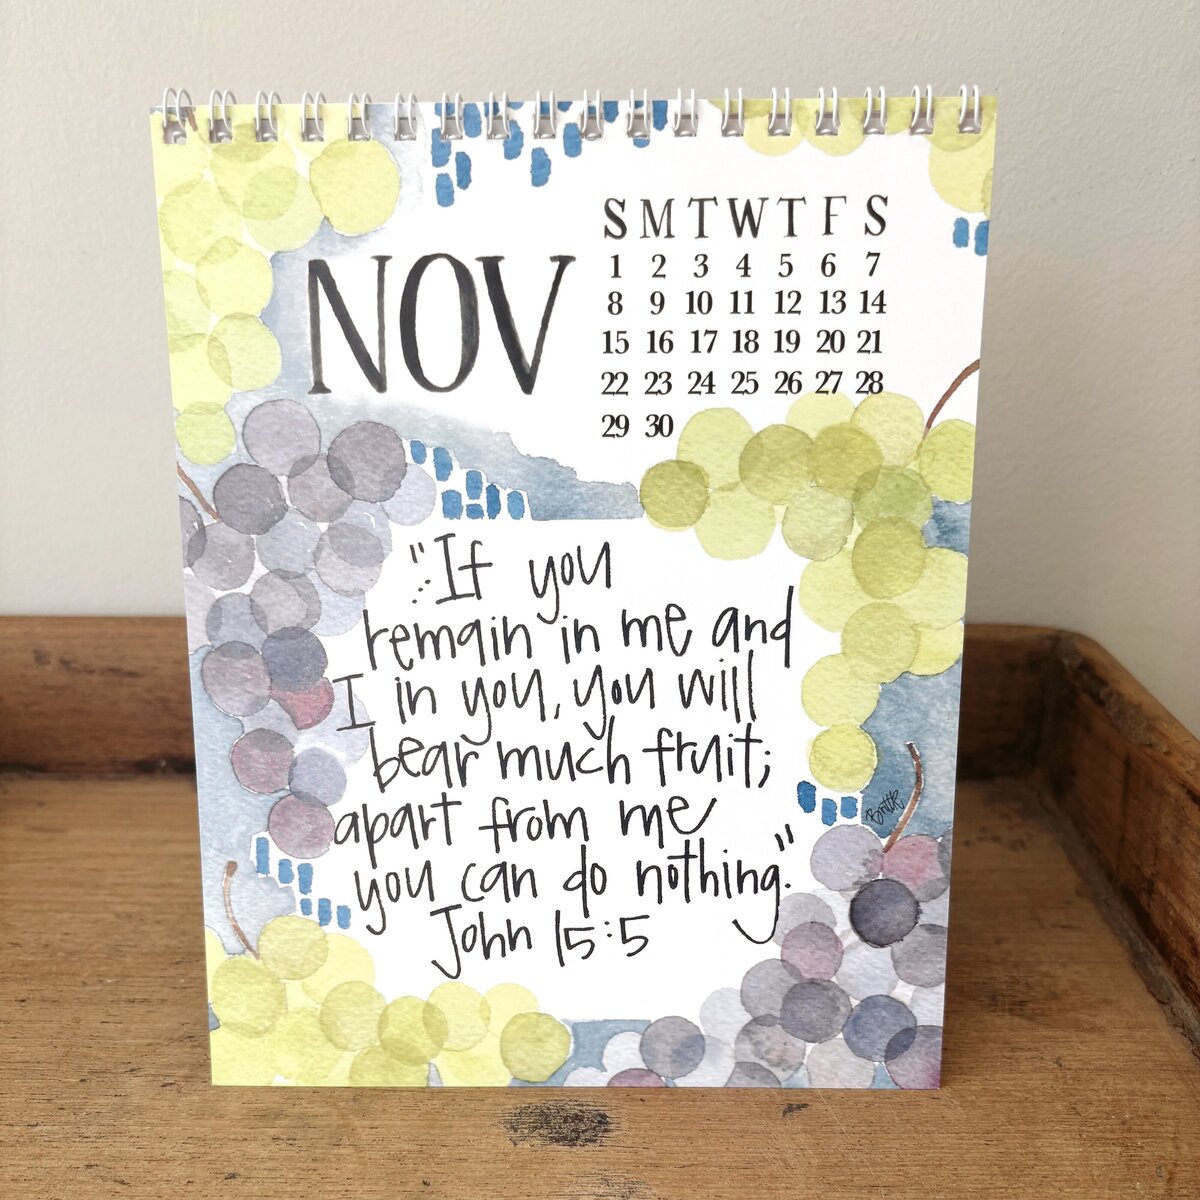 NOV
S M T W T F S
1 2 3 4 5 6 7
8 9 10 11 12 13 14
15 16 17 18 19 20 21
22 23 24 25 26 27 28
29 30
"If you
remain in me and
I in you, you will
bear much fruit;
apart from me
you can do nothing."
John 15:5